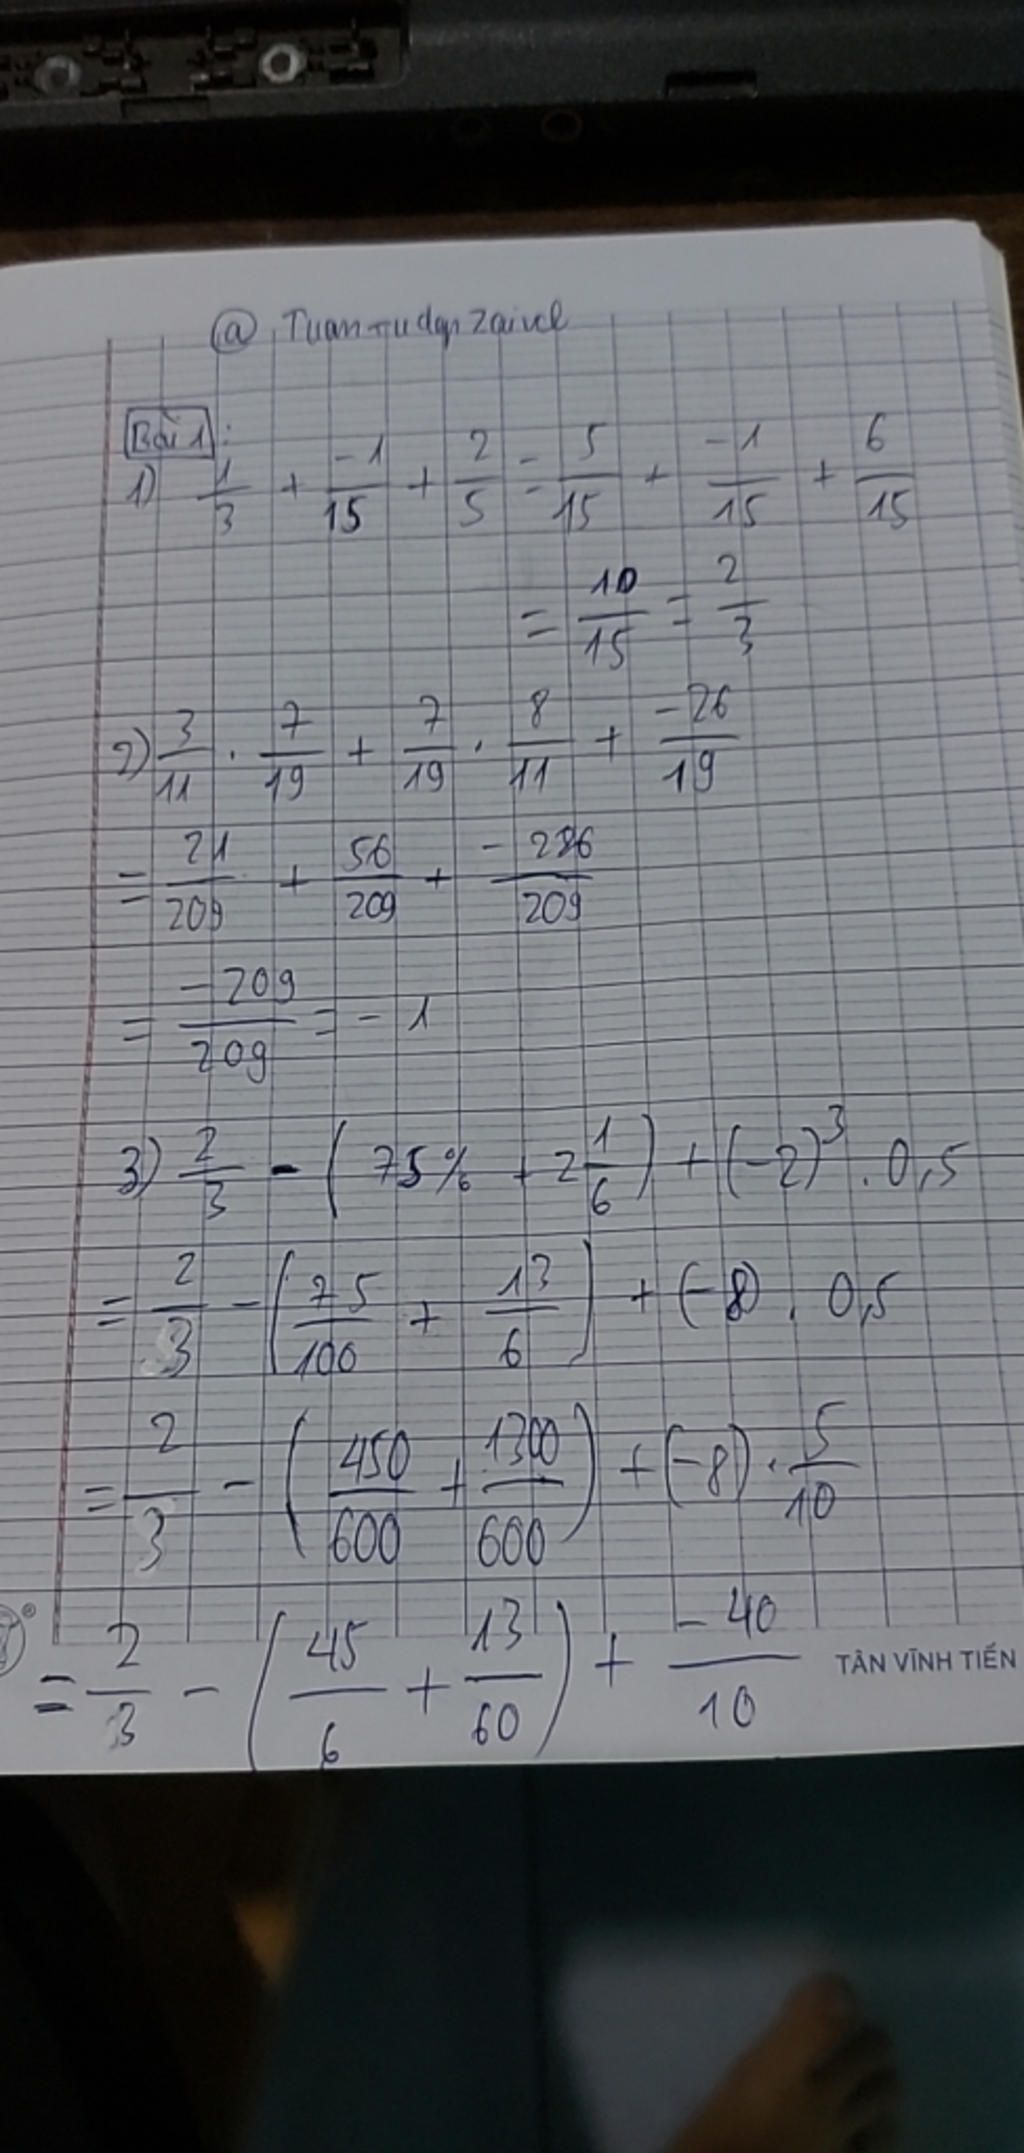 Bài 1:
1) 1/3 + -1/15 + 2/5 = 5/15 + -1/15 + 6/15
= 10/15 = 2/3
2) 3/11 . 7/19 + 7/19 . 8/11 + -26/19
= 21/209 + 56/209 + -286/209
= -209/209 = -1
3) 2/3 - (75% + 2 1/6) + (-2)³ . 0,5
= 2/3 - (75/100 + 13/6) + (-8) . 0,5
= 2/3 - (450/600 + 1300/600) + (-8) . 5/10
= 2/3 - (45/6 + 13/60) + -40/10
TÂN VĨNH TIẾN